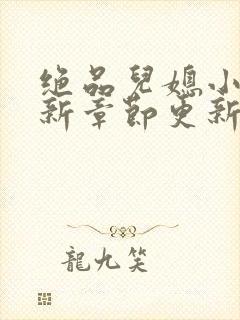 绝品兒媳小
新章節更新
龍九笑